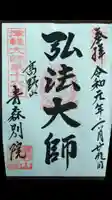 奉拝 令和元年 月廿九日
弘法大師
高野山
青森別院